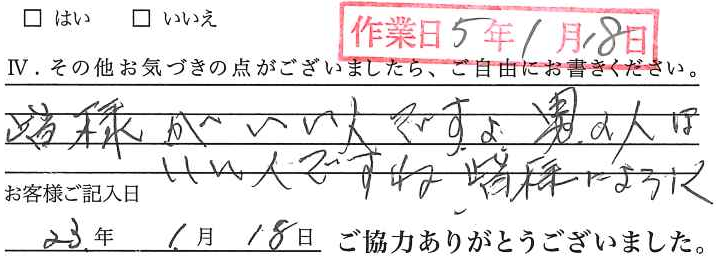 □ はい □ いいえ
作業日 5年1月18日
Ⅳ．その他お気づきの点がございましたら、ご自由にお書きください。
皆様がいい人ですよ 男の人は
いい人ですね 皆様によろしく
お客様ご記入日
23年 1月 18日 ご協力ありがとうございました。